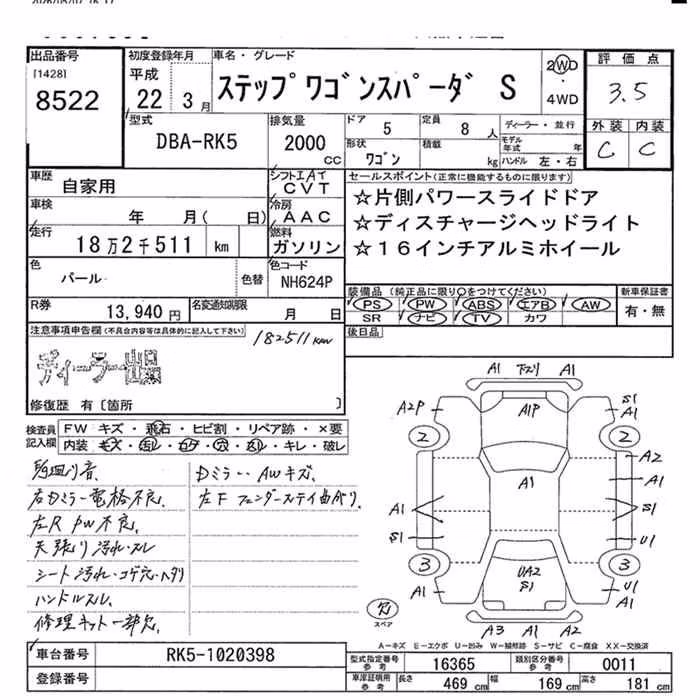 出品番号
[1428]
8522
初度登録年月
平成
22 3月
車名・グレード
ステップワゴンスパーダ S
2WD
・
4WD
評価点
3.5
外装 内装
C C
型式
DBA-RK5
排気量
2000
CC
ドア 5
定員 8 人
形状 ワゴン
積載 kg
ディーラー・並行
モデル年式 年
ハンドル 左・右
車歴
自家用
シフト エアイ
CVT
車検
年 月( 日)
冷房
AAC
走行
18万2千511 km
燃料
ガソリン
色
パール
色替
色コード
NH624P
セールスポイント(正常に機能するものに限ります)
☆片側パワースライドドア
☆ディスチャージヘッドライト
☆16インチアルミホイール
R券
13,940 円
名変通知期限
月 日
装備品 (純正品に限り○をつけてください)
PS PW ABS エアB AW
SR ナビ TV カワ
新車保証書
有・無
後日品
注意事項申告欄(不具合内容等は具体的に記入して下さい)
182511km
ディーラー出品
修復歴 有〔箇所 〕
検査員
記入欄
FW キズ・飛石・ヒビ割・リペア跡・×要
内装・キズ・汚レ・コゲ・穴・スレ・キレ・破レ
右Dミラー電格不良、
左R PW不良、
天張り汚れ・スレ
シート汚れ・コゲ穴・ヘタリ
ハンドルスレ、
修理キット一部欠、
Dミラー・AWキズ、
左Fフェンダーステイ曲がり、
A1 下スリ A1
A2P A1P S1 A1
2 2
A1 A2
A1 A1 S1
S1 U1
3 UA2 S1 3
A1 U1 A1
A3 A1 A2
欠
スペア
A-キズ E-エクボ U-凹み W-補修跡 S-サビ C-腐食 XX-交換済
車台番号
RK5-1020398
登録番号
型式指定番号
参考
16365
類別区分番号
参考
0011
車庫証明用
参考
長さ 469 cm
幅 169 cm
高さ 181 cm